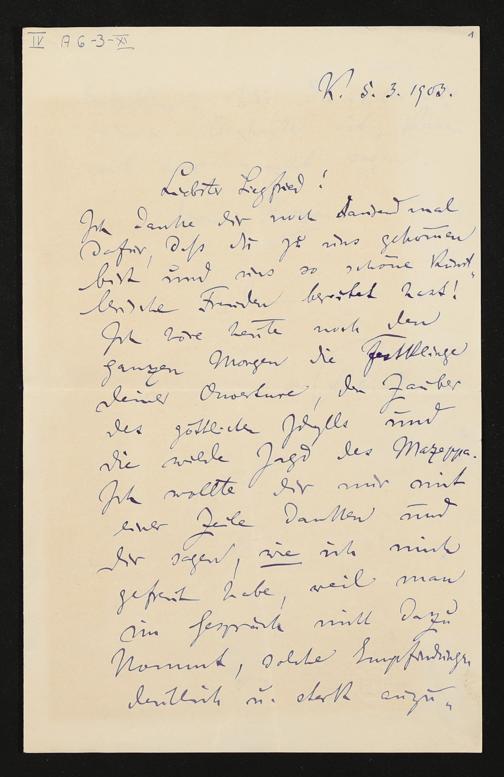 IV A 6-3-XI
1
K. 5. 3. 1903.
Liebster Siegfried!
Ich danke dir noch tausend mal
dafür, daß du zu uns gekommen
bist und uns so schöne künst„
lerische Freuden bereitet hast!
Ich höre heute noch den
ganzen Morgen die Festklänge
deiner Ouverture, den Zauber
des göttlichen Idylls und
die wilde Jagd des Mazeppa.
Ich wollte dir nur mit
einer Zeile danken und
dir sagen, wie ich mich
gefreut habe, weil man
im Gespräch nicht dazu
kommt, solche Empfindungen
deutlich u. stark auszu„